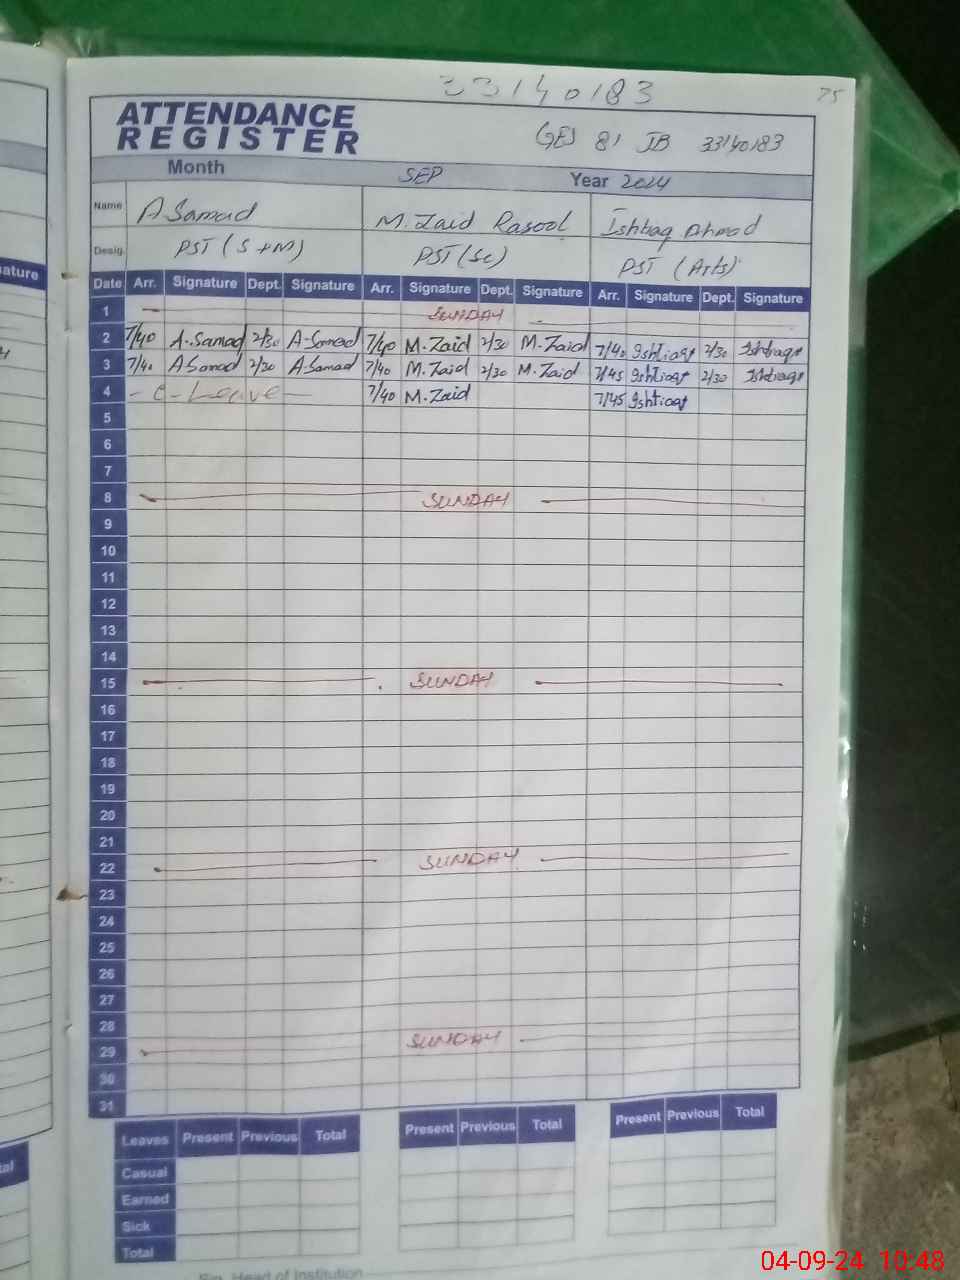 33140183
75
ATTENDANCE
REGISTER
GES 81 JB 33140183
Month SEP Year 2024
Name A Samad M. Zaid Rasool Ishtiaq Ahmad
Desig. PST (S+M) PST (Sc) PST (Arts)
Date Arr. Signature Dept. Signature Arr. Signature Dept. Signature Arr. Signature Dept. Signature
1 SUNDAY
2 7/40 A.Samad 2/30 A-Samad 7/40 M.Zaid 2/30 M.Zaid 7/40 Ishtiaq 2/30 Ishtiaq
3 7/40 A Samad 2/30 A-Samad 7/40 M.Zaid 2/30 M.Zaid 7/45 Ishtiaq 2/30 Ishtiaq
4 - C-Leave - 7/40 M.Zaid 7/45 Ishtiaq
5
6
7
8 SUNDAY
9
10
11
12
13
14
15 SUNDAY
16
17
18
19
20
21
22 SUNDAY
23
24
25
26
27
28
29 SUNDAY
30
31
Leaves Present Previous Total Present Previous Total Present Previous Total
Casual
Earned
Sick
Total
Sig. Head of Institution
ature
al
04-09-24 10:48